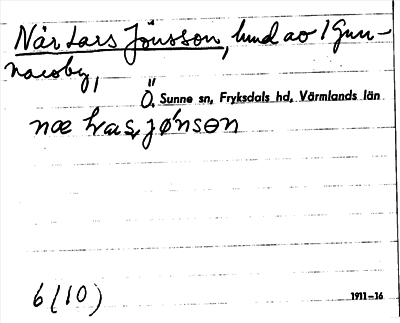 När Lars Jönsson, hmd av 1 Gun-
narsby,
Ö. Sunne sn, Fryksdals hd, Värmlands län
næ las, jǿnsɵn
6 (10)
1911–16